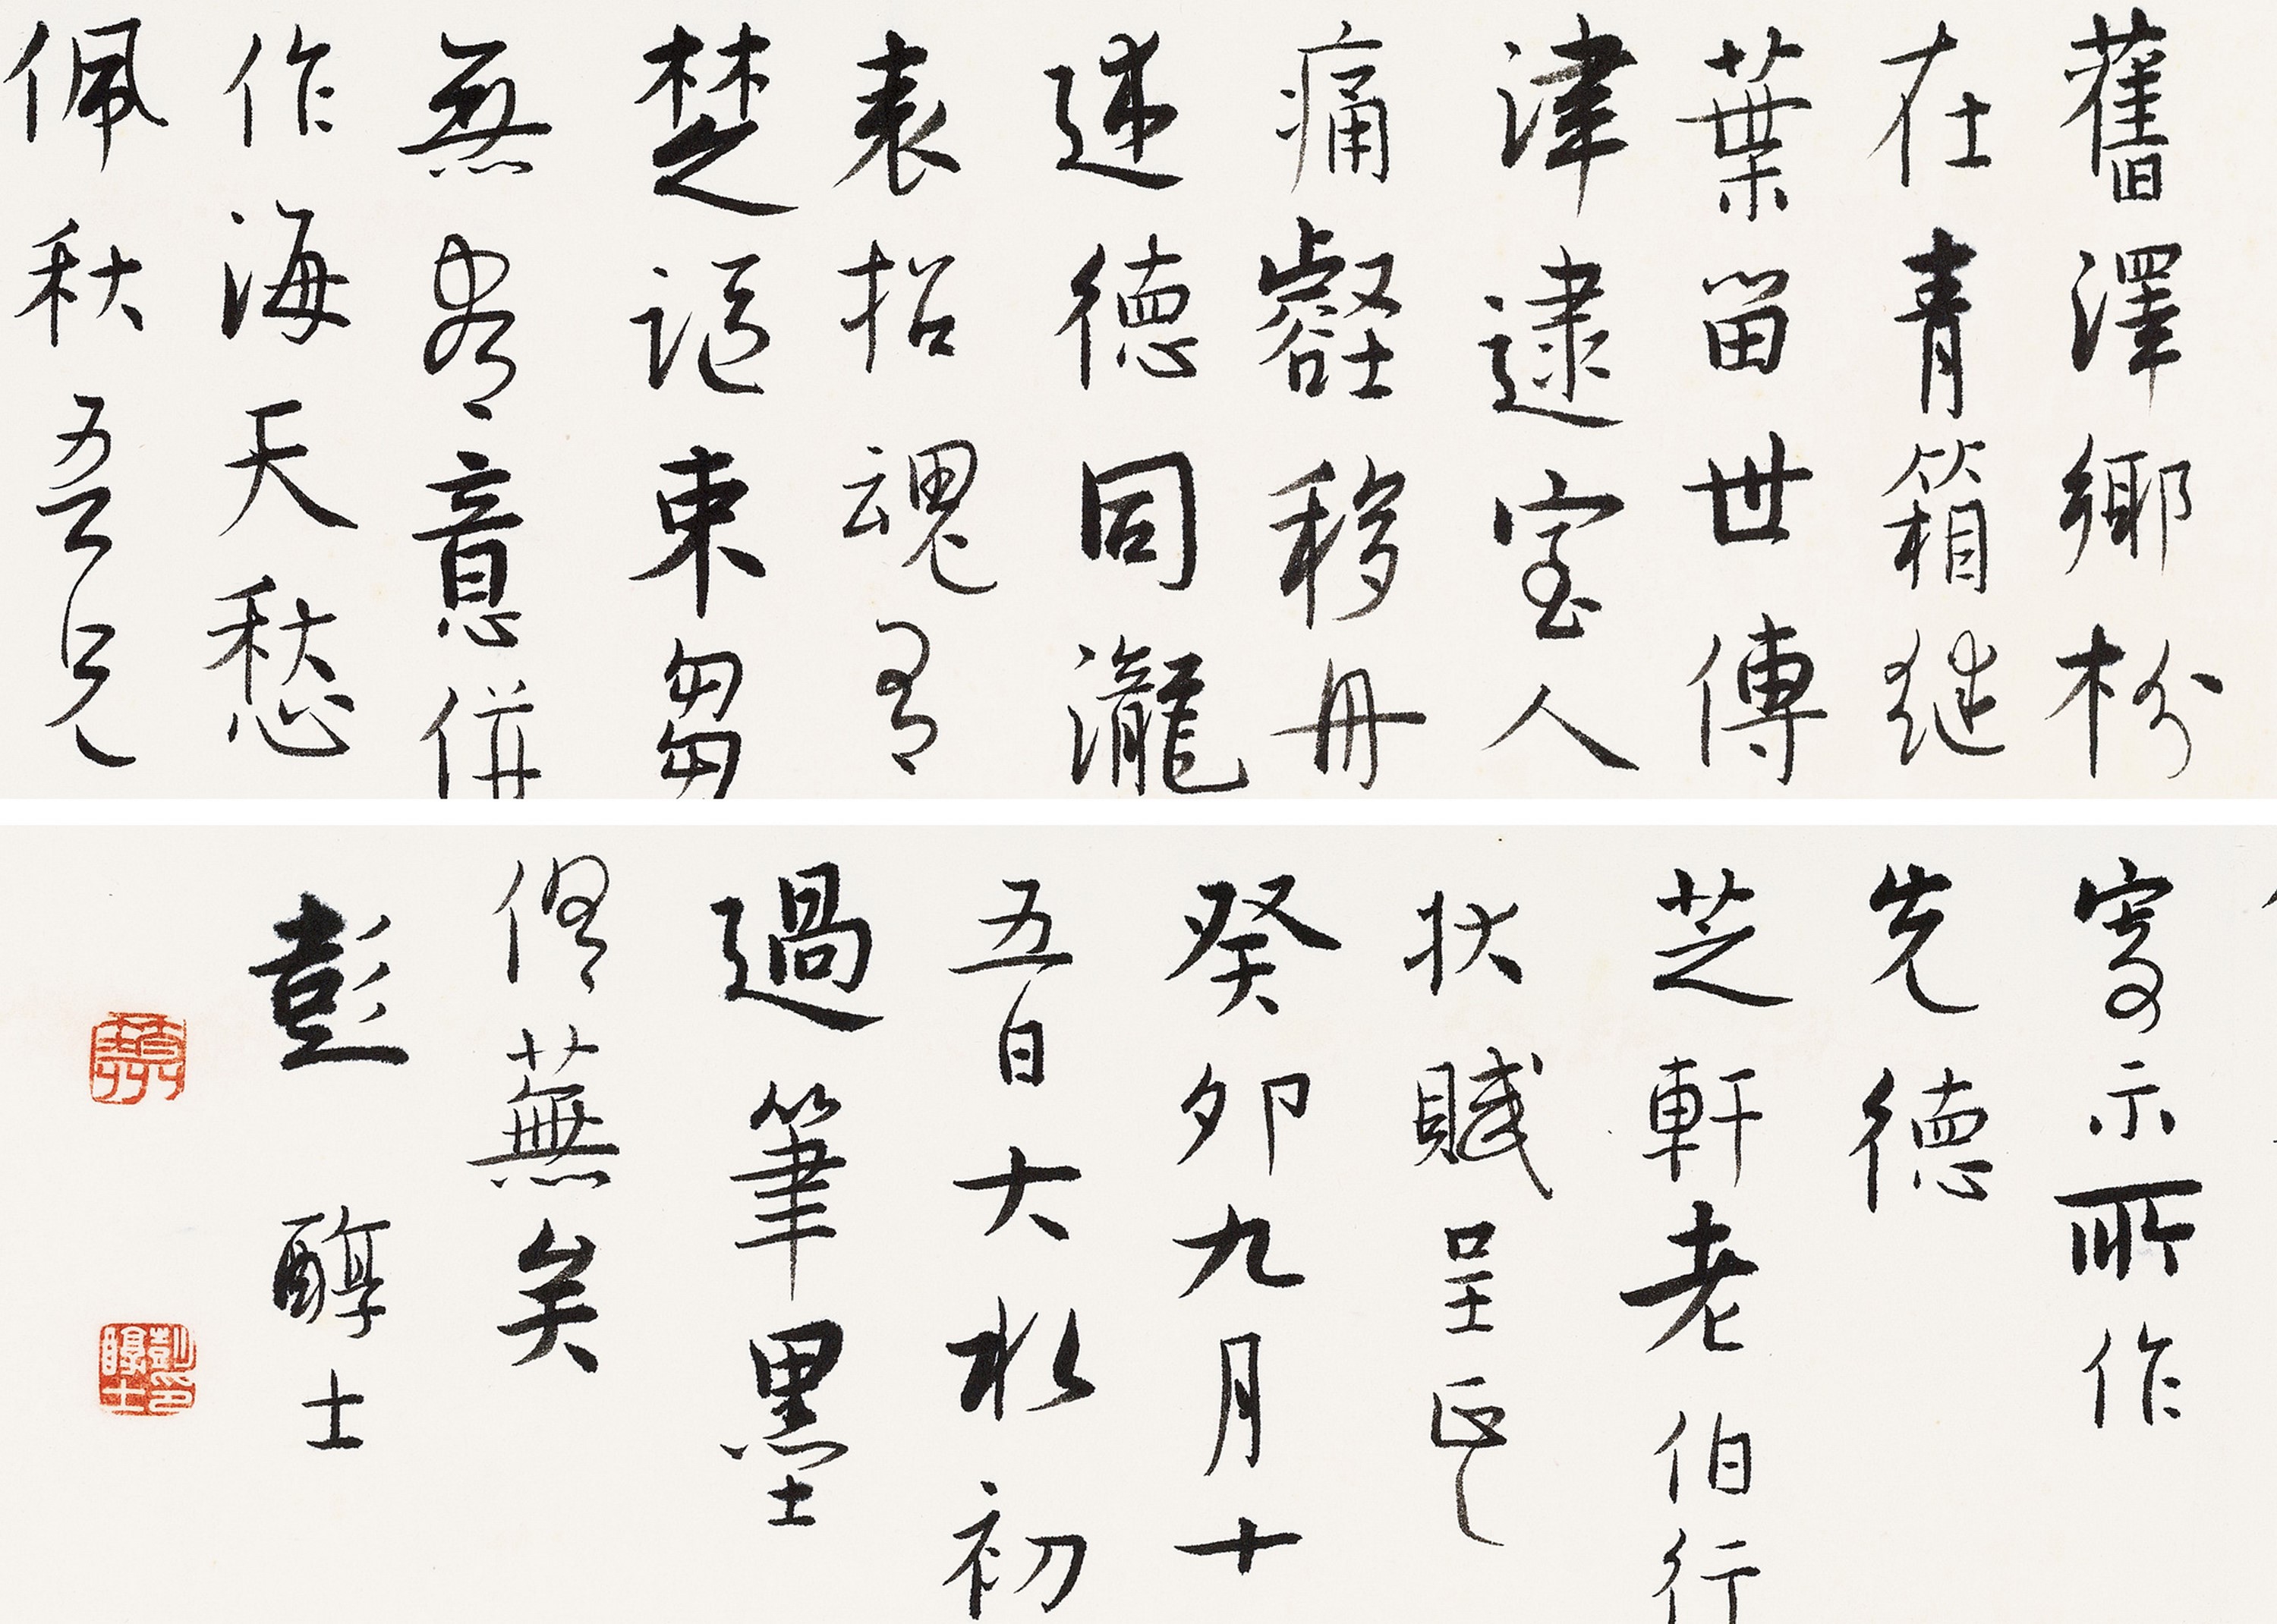 舊澤鄉枌
在青箱繼
葉留世傳
津逮室人
痛壑移舟
述德同瀧
表招魂有
楚謳束芻
無意併
作海天愁
佩秋吾兄
寄示所作
先德
芝軒老伯行
狀賦呈正
癸卯九月十
五日大水初
過筆墨
蕪矣
彭醇士
彭印醇士